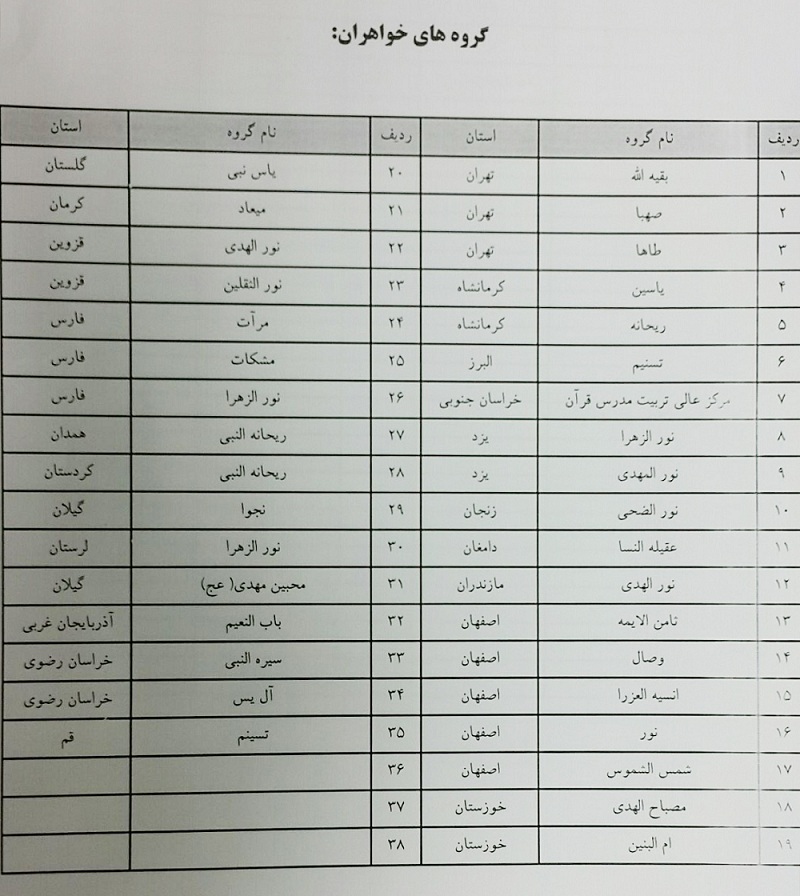 گروه های خواهران:
ردیف نام گروه استان ردیف نام گروه استان
۱ بقیه الله تهران ۲۰ یاس نبی گلستان
۲ صهبا تهران ۲۱ میعاد کرمان
۳ طاها تهران ۲۲ نور الهدی قزوین
۴ یاسین کرمانشاه ۲۳ نور الثقلین قزوین
۵ ریحانه کرمانشاه ۲۴ مرآت فارس
۶ تسنیم البرز ۲۵ مشکات فارس
۷ مرکز عالی تربیت مدرس قرآن خراسان جنوبی ۲۶ نور الزهرا فارس
۸ نور الزهرا یزد ۲۷ ریحانه النبی همدان
۹ نور المهدی یزد ۲۸ ریحانه النبی کردستان
۱۰ نور الضحی زنجان ۲۹ نجوا گیلان
۱۱ عقیله النسا دامغان ۳۰ نور الزهرا لرستان
۱۲ نور الهدی مازندران ۳۱ محبین مهدی( عج) گیلان
۱۳ ثامن الایمه اصفهان ۳۲ باب النعیم آذربایجان غربی
۱۴ وصال اصفهان ۳۳ سیره النبی خراسان رضوی
۱۵ انسیه العزرا اصفهان ۳۴ آل یس خراسان رضوی
۱۶ نور اصفهان ۳۵ تسینم قم
۱۷ شمس الشموس اصفهان ۳۶
۱۸ مصباح الهدی خوزستان ۳۷
۱۹ ام البنین خوزستان ۳۸